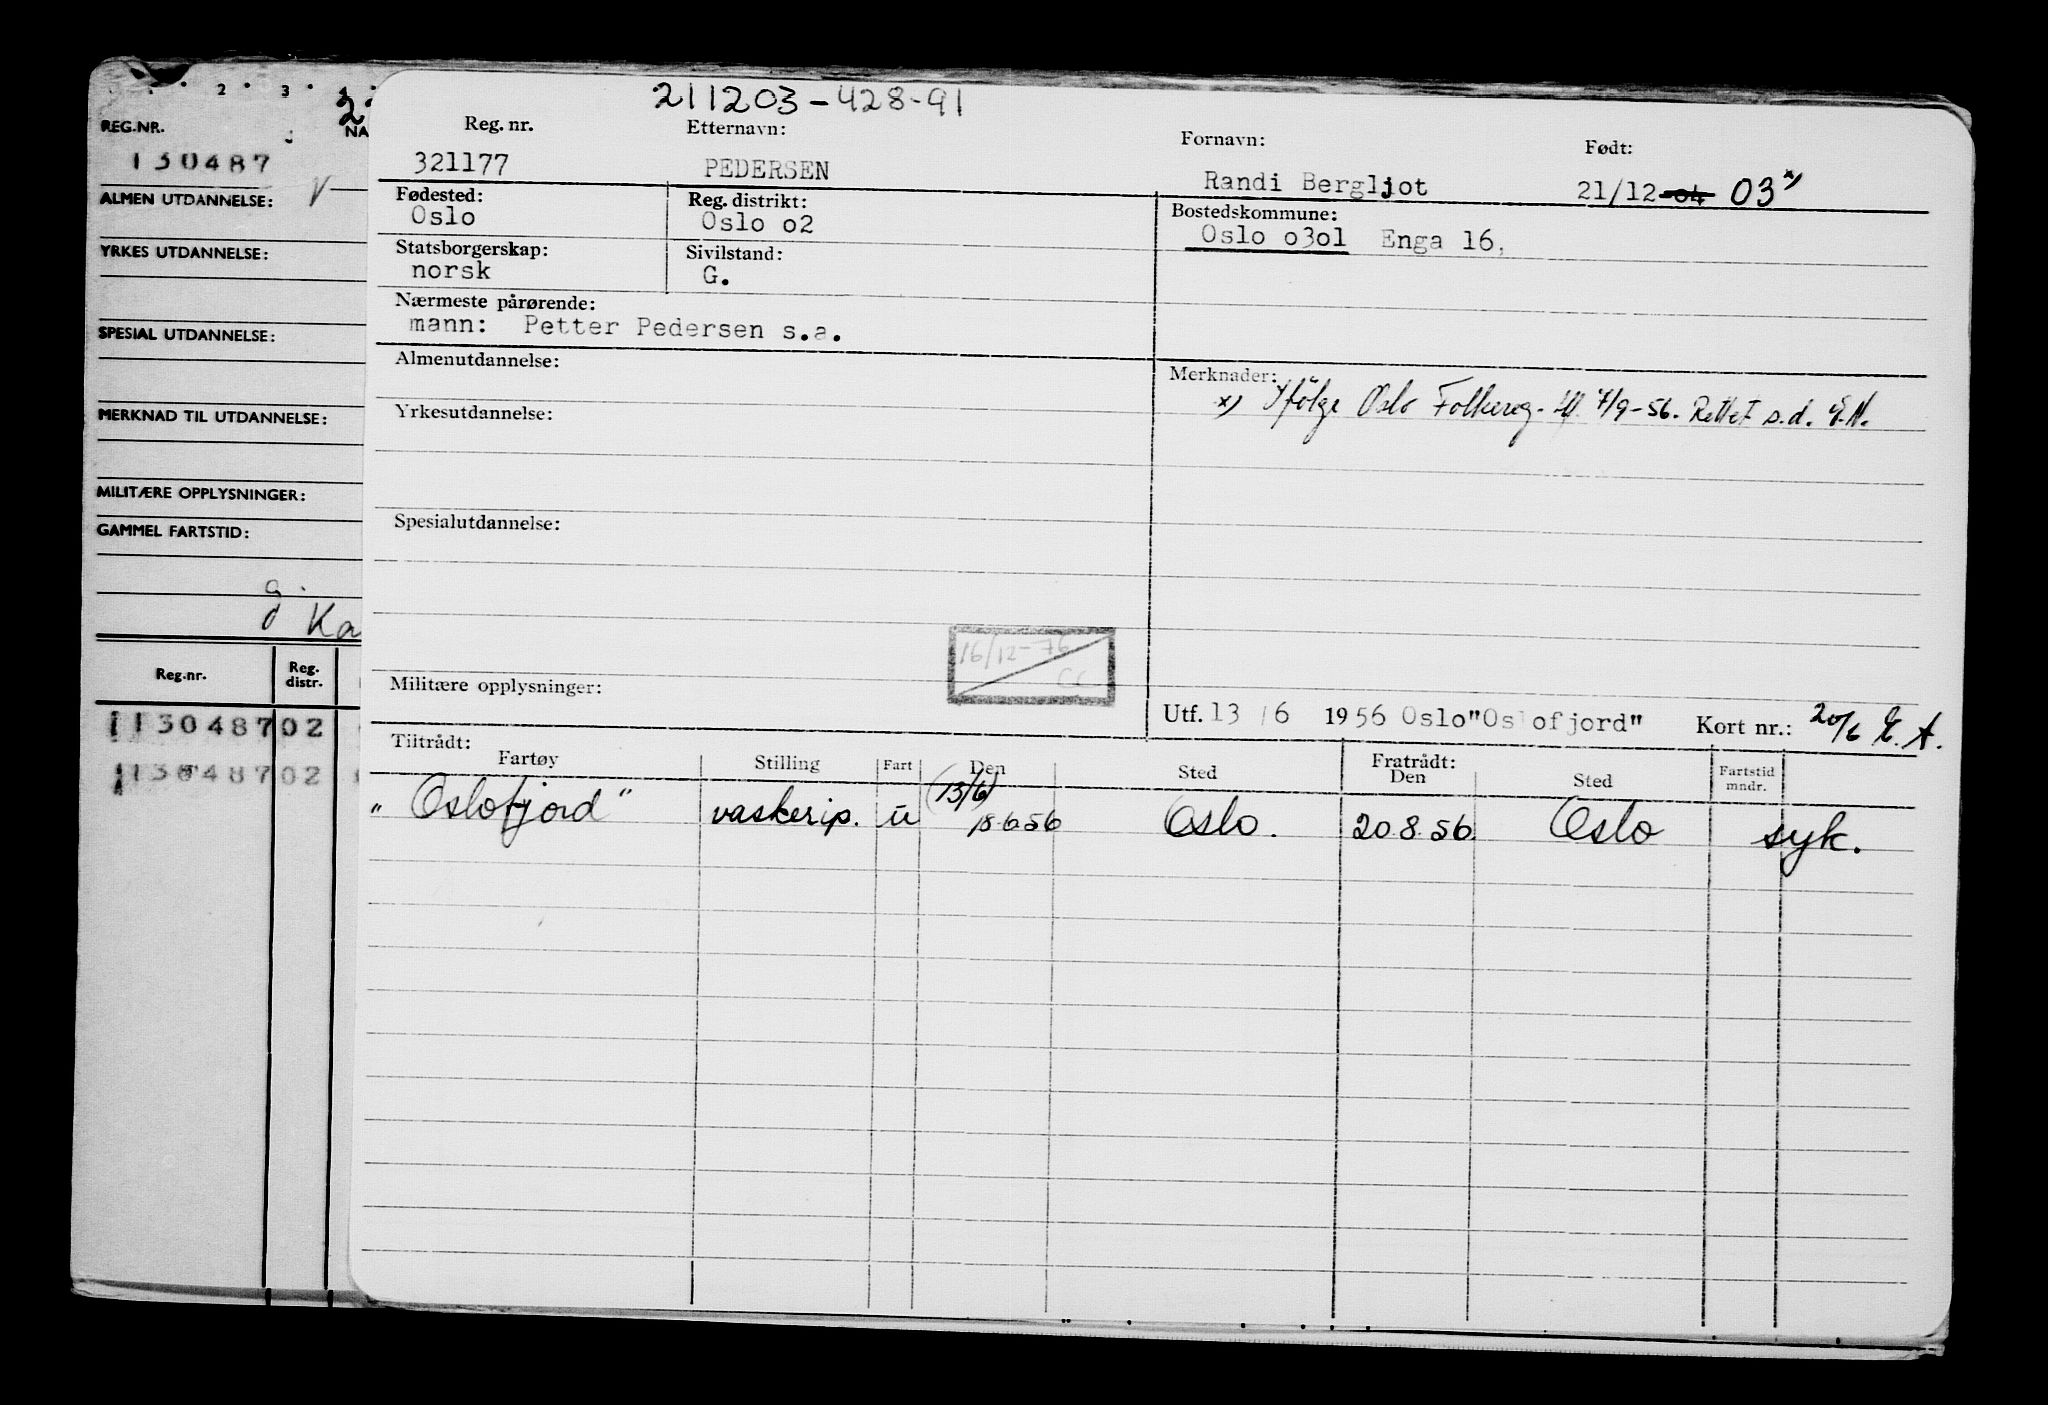 2 3 4
2
REG.NR. NA
130487
ALMEN UTDANNELSE: V
YRKES UTDANNELSE:
SPESIAL UTDANNELSE:
MERKNAD TIL UTDANNELSE:
MILITÆRE OPPLYSNINGER:
GAMMEL FARTSTID:
g.
Ka
Reg.nr. Reg. distr.
113048702
113048702
211203-428-91
Reg. nr. Etternavn: Fornavn: Født:
321177 PEDERSEN Randi Bergljot 21/12 04 03 x)
Fødested: Reg. distrikt: Bostedskommune:
Oslo Oslo o2 Oslo o3o1 Enga 16,
Statsborgerskap: Sivilstand:
norsk G.
Nærmeste pårørende:
mann: Petter Pedersen s.a.
Almenutdannelse: Merknader:
x) Ifölge Oslo Folkereg. 7/9-56. Rettet s.d. E.A.
Yrkesutdannelse:
Spesialutdannelse:
16/12-76
CC
Militære opplysninger:
Utf. 13/6 1956 Oslo "Oslofjord" Kort nr.: 20/6 E. A.
Tiltrådt: Fratrådt:
Fartøy Stilling Fart Den Sted Den Sted Fartstid mndr.
(13/6)
"Oslofjord" vaskerip. u 18.6.56 Oslo. 20.8.56. Oslo syk.